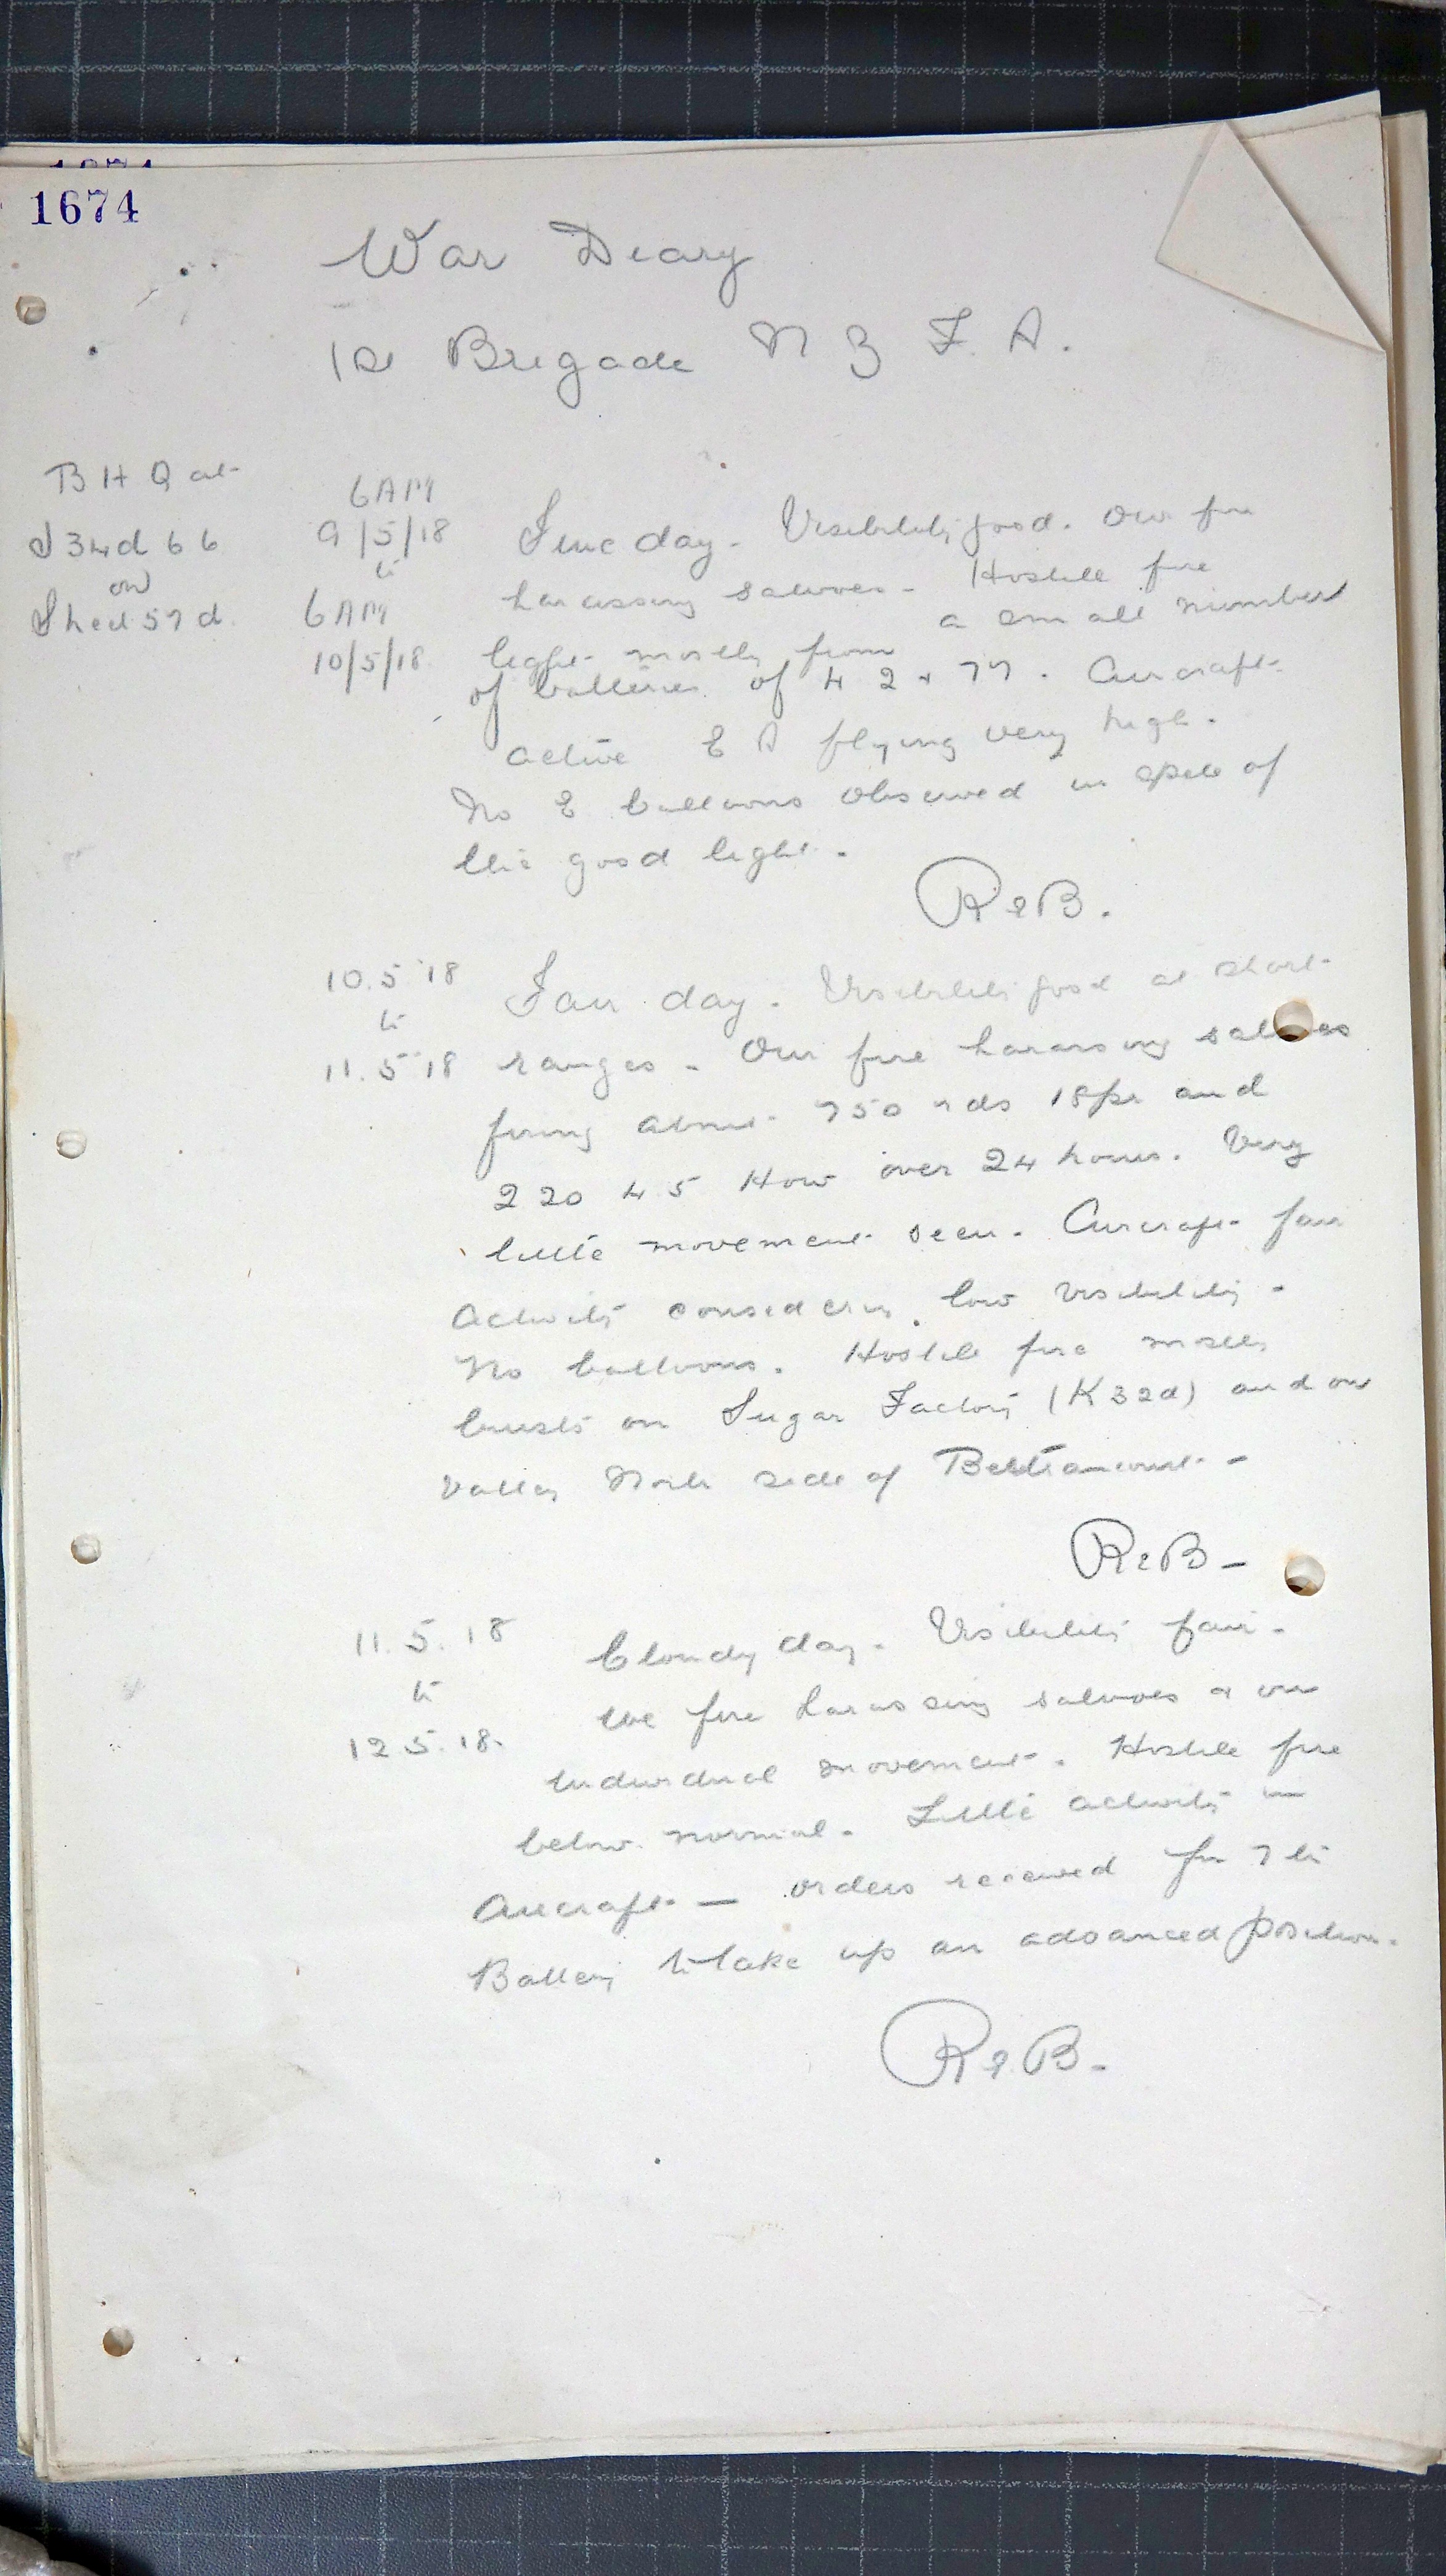 1674
War Diary
1st Brigade N Z F. A.
B H Q at
J34d 66
on
Sheet 57d.
6AM
9/5/18
to
6AM
10/5/18.
Fine day. Visibility good. Our fire
harassing salvoes. Hostile fire
light mostly from a small number
of batteries of 4 2 + 77. Aircraft
active E A flying very high.
No E balloons observed in spite of
the good light.
ReB.
10.5.18
to
11.5.18
Fair day. Visibility good at short
ranges. Our fire harassing salvoes
firing about 750 rds 18pr and
220 4 5 How over 24 hours. Very
little movement seen. Aircraft fair
activity considering low visibility.
No balloons. Hostile fire mostly
bursts on Sugar Factory (K32d) and on
valley North side of Bertrancourt -
ReB -
11.5.18
to
12.5.18.
Cloudy day. Visibility fair.
We fire harassing salvoes & on
individual movement. Hostile fire
below normal. Little activity in
Aircraft — orders received for 7th
Battery to take up an advanced position.
ReB.